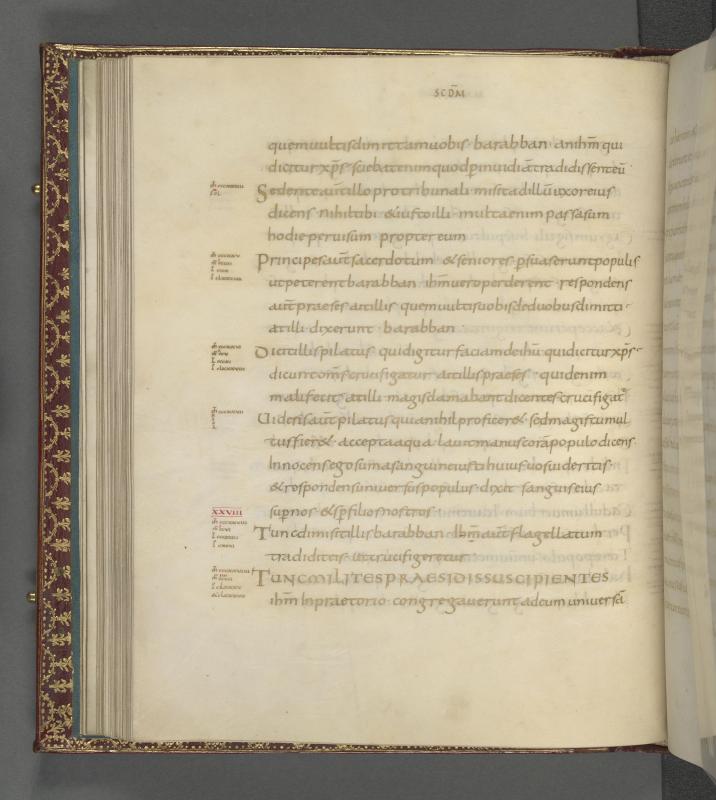 SCDM̄
quem vultis dimittam vobis · barabban · an ihm̄ qui
dicitur xp̄s · sciebat enim quod p̄ invidiā tradidissent eū
Sedente aut̄ illo pro tribunali · misit ad illū uxor eius
dicens · nihil tibi & iusto illi · multa enim passa sum
hodie per visum propter eum
Principes aut̄ sacerdotum & seniores p̄suaserunt populis
ut peterent barabban ihm̄ vero perderent · respondens
aut̄ praeses ait illis · quem vultis vobis de duobus dimitti ·
at illi dixerunt · barabban ·
Dicit illis pilatus · quid igitur faciam de ihū qui dicitur xp̄s ·
dicunt om̄s crucifigatur · ait illis praeses · quid enim
mali fecit · at illi magis clamabant dicentes crucifigat̄
Videns aut̄ pilatus quia nihil proficer& · sed magis tumul
tus fier& · accepta aqua lavit manus corā populo dicens ·
Innocens ego sum a sanguine iusti huius · vos videritis ·
& respondens universus populus dixit · sanguis eius
XXVIII
sup nos & sup̄ filios nostros ·
Tunc dimisit illis barabban · ihm̄ aut̄ flagellatum
tradidit eis · ut crucifigeretur
TUNC MILITES PRAESIDIS SUSCIPIENTES
ihm̄ In praetorio · congregaverunt ad eum universā